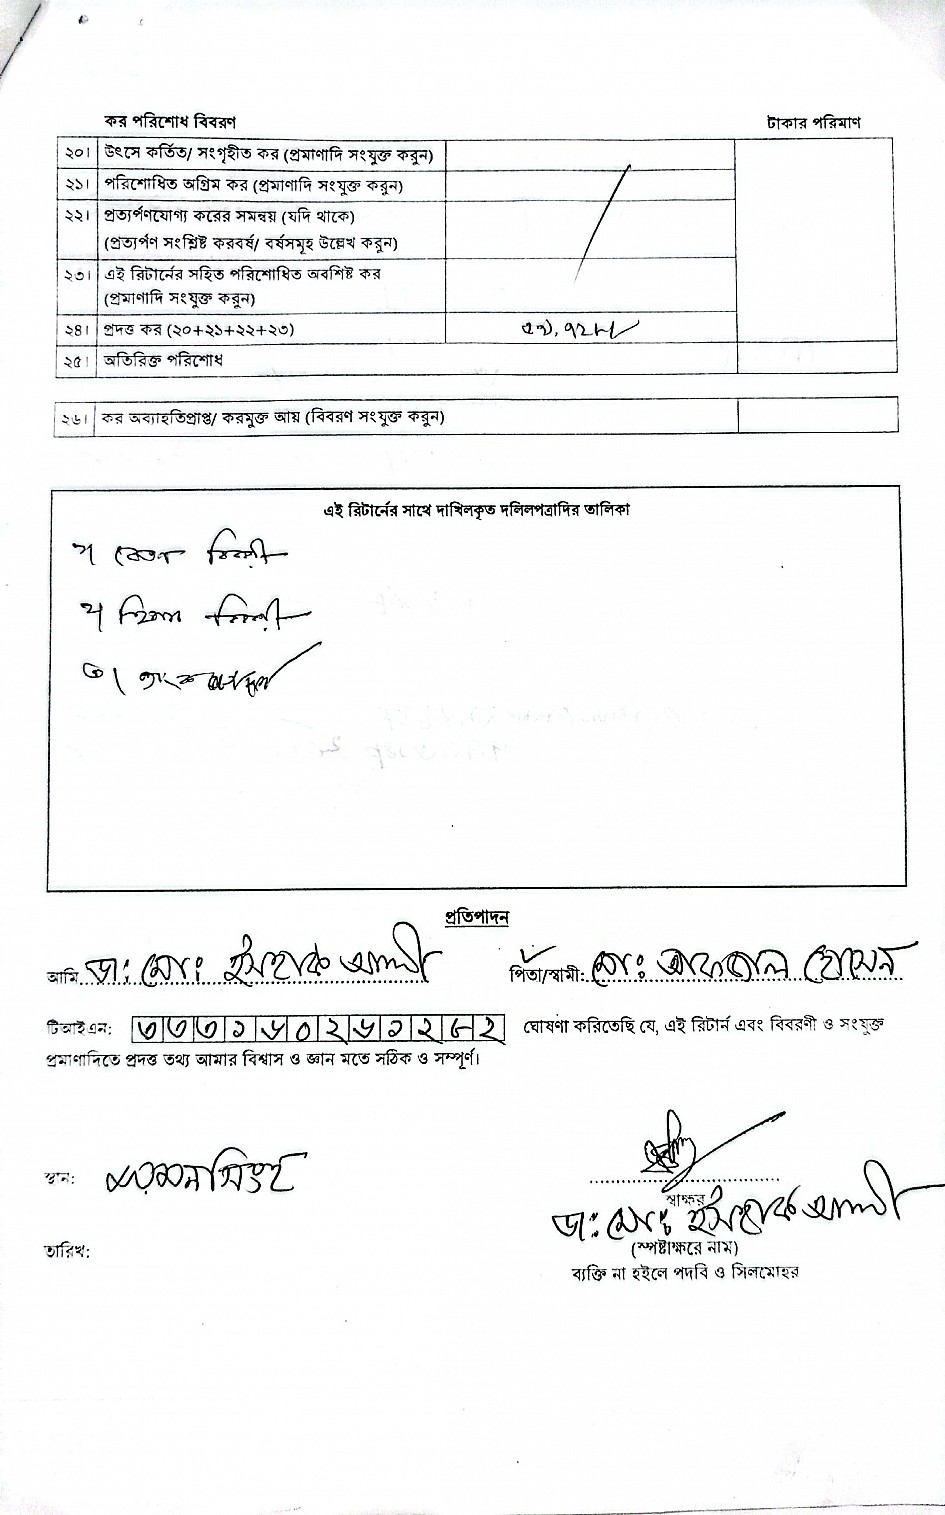 কর পরিশোধ বিবরণ টাকার পরিমাণ
২০। উৎসে কর্তিত/ সংগৃহীত কর (প্রমাণাদি সংযুক্ত করুন)
২১। পরিশোধিত অগ্রিম কর (প্রমাণাদি সংযুক্ত করুন)
২২। প্রত্যর্পণযোগ্য করের সমন্বয় (যদি থাকে)
(প্রত্যর্পণ সংশ্লিষ্ট করবর্ষ/ বর্ষসমূহ উল্লেখ করুন)
২৩। এই রিটার্নের সহিত পরিশোধিত অবশিষ্ট কর
(প্রমাণাদি সংযুক্ত করুন)
২৪। প্রদত্ত কর (২০+২১+২২+২৩)
২৫। অতিরিক্ত পরিশোধ
২৬। কর অব্যাহতিপ্রাপ্ত/ করমুক্ত আয় (বিবরণ সংযুক্ত করুন)
এই রিটার্নের সাথে দাখিলকৃত দলিলপত্রাদির তালিকা
১। বেতন বিবরণী
২। হিসাব বিবরণী
৩।
প্রতিপাদন
আমি ডা: মো: ইসহাক আলী পিতা/স্বামী: মো: আফজাল হোসেন
টিআইএন: ৩৩৩১৬০২৬১২৫২ ঘোষণা করিতেছি যে, এই রিটার্ন এবং বিবরণী ও সংযুক্ত
প্রমাণাদিতে প্রদত্ত তথ্য আমার বিশ্বাস ও জ্ঞান মতে সঠিক ও সম্পূর্ণ।
স্থান: ময়মনসিংহ
স্বাক্ষর
ডা: মো: ইসহাক আলী
(স্পষ্টাক্ষরে নাম)
তারিখ:
ব্যক্তি না হইলে পদবি ও সিলমোহর